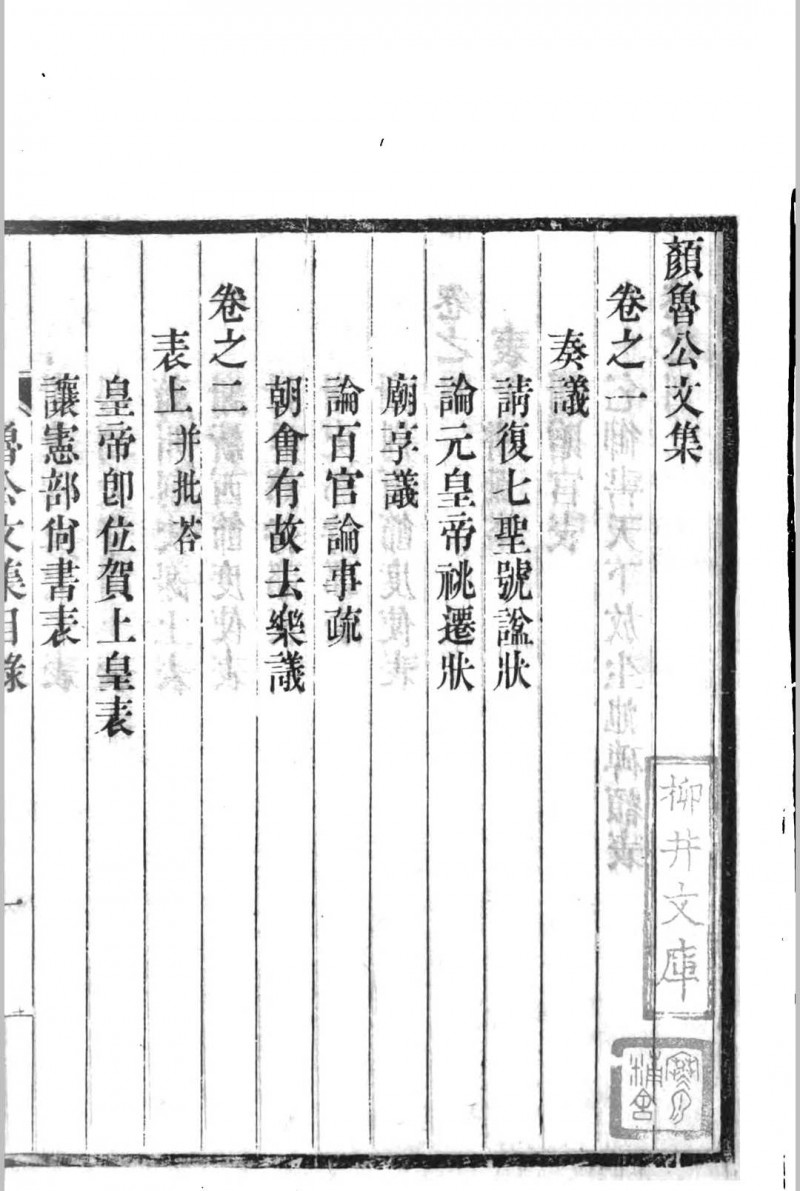 顏魯公文集
卷之一
奏議
請復七聖號諡狀
論元皇帝祧遷狀
廟享議
論百官論事疏
朝會有故去樂議
卷之二
表上并批荅
皇帝卽位賀上皇表
讓憲部尙書表
魯公文集目錄
一
柳井文庫